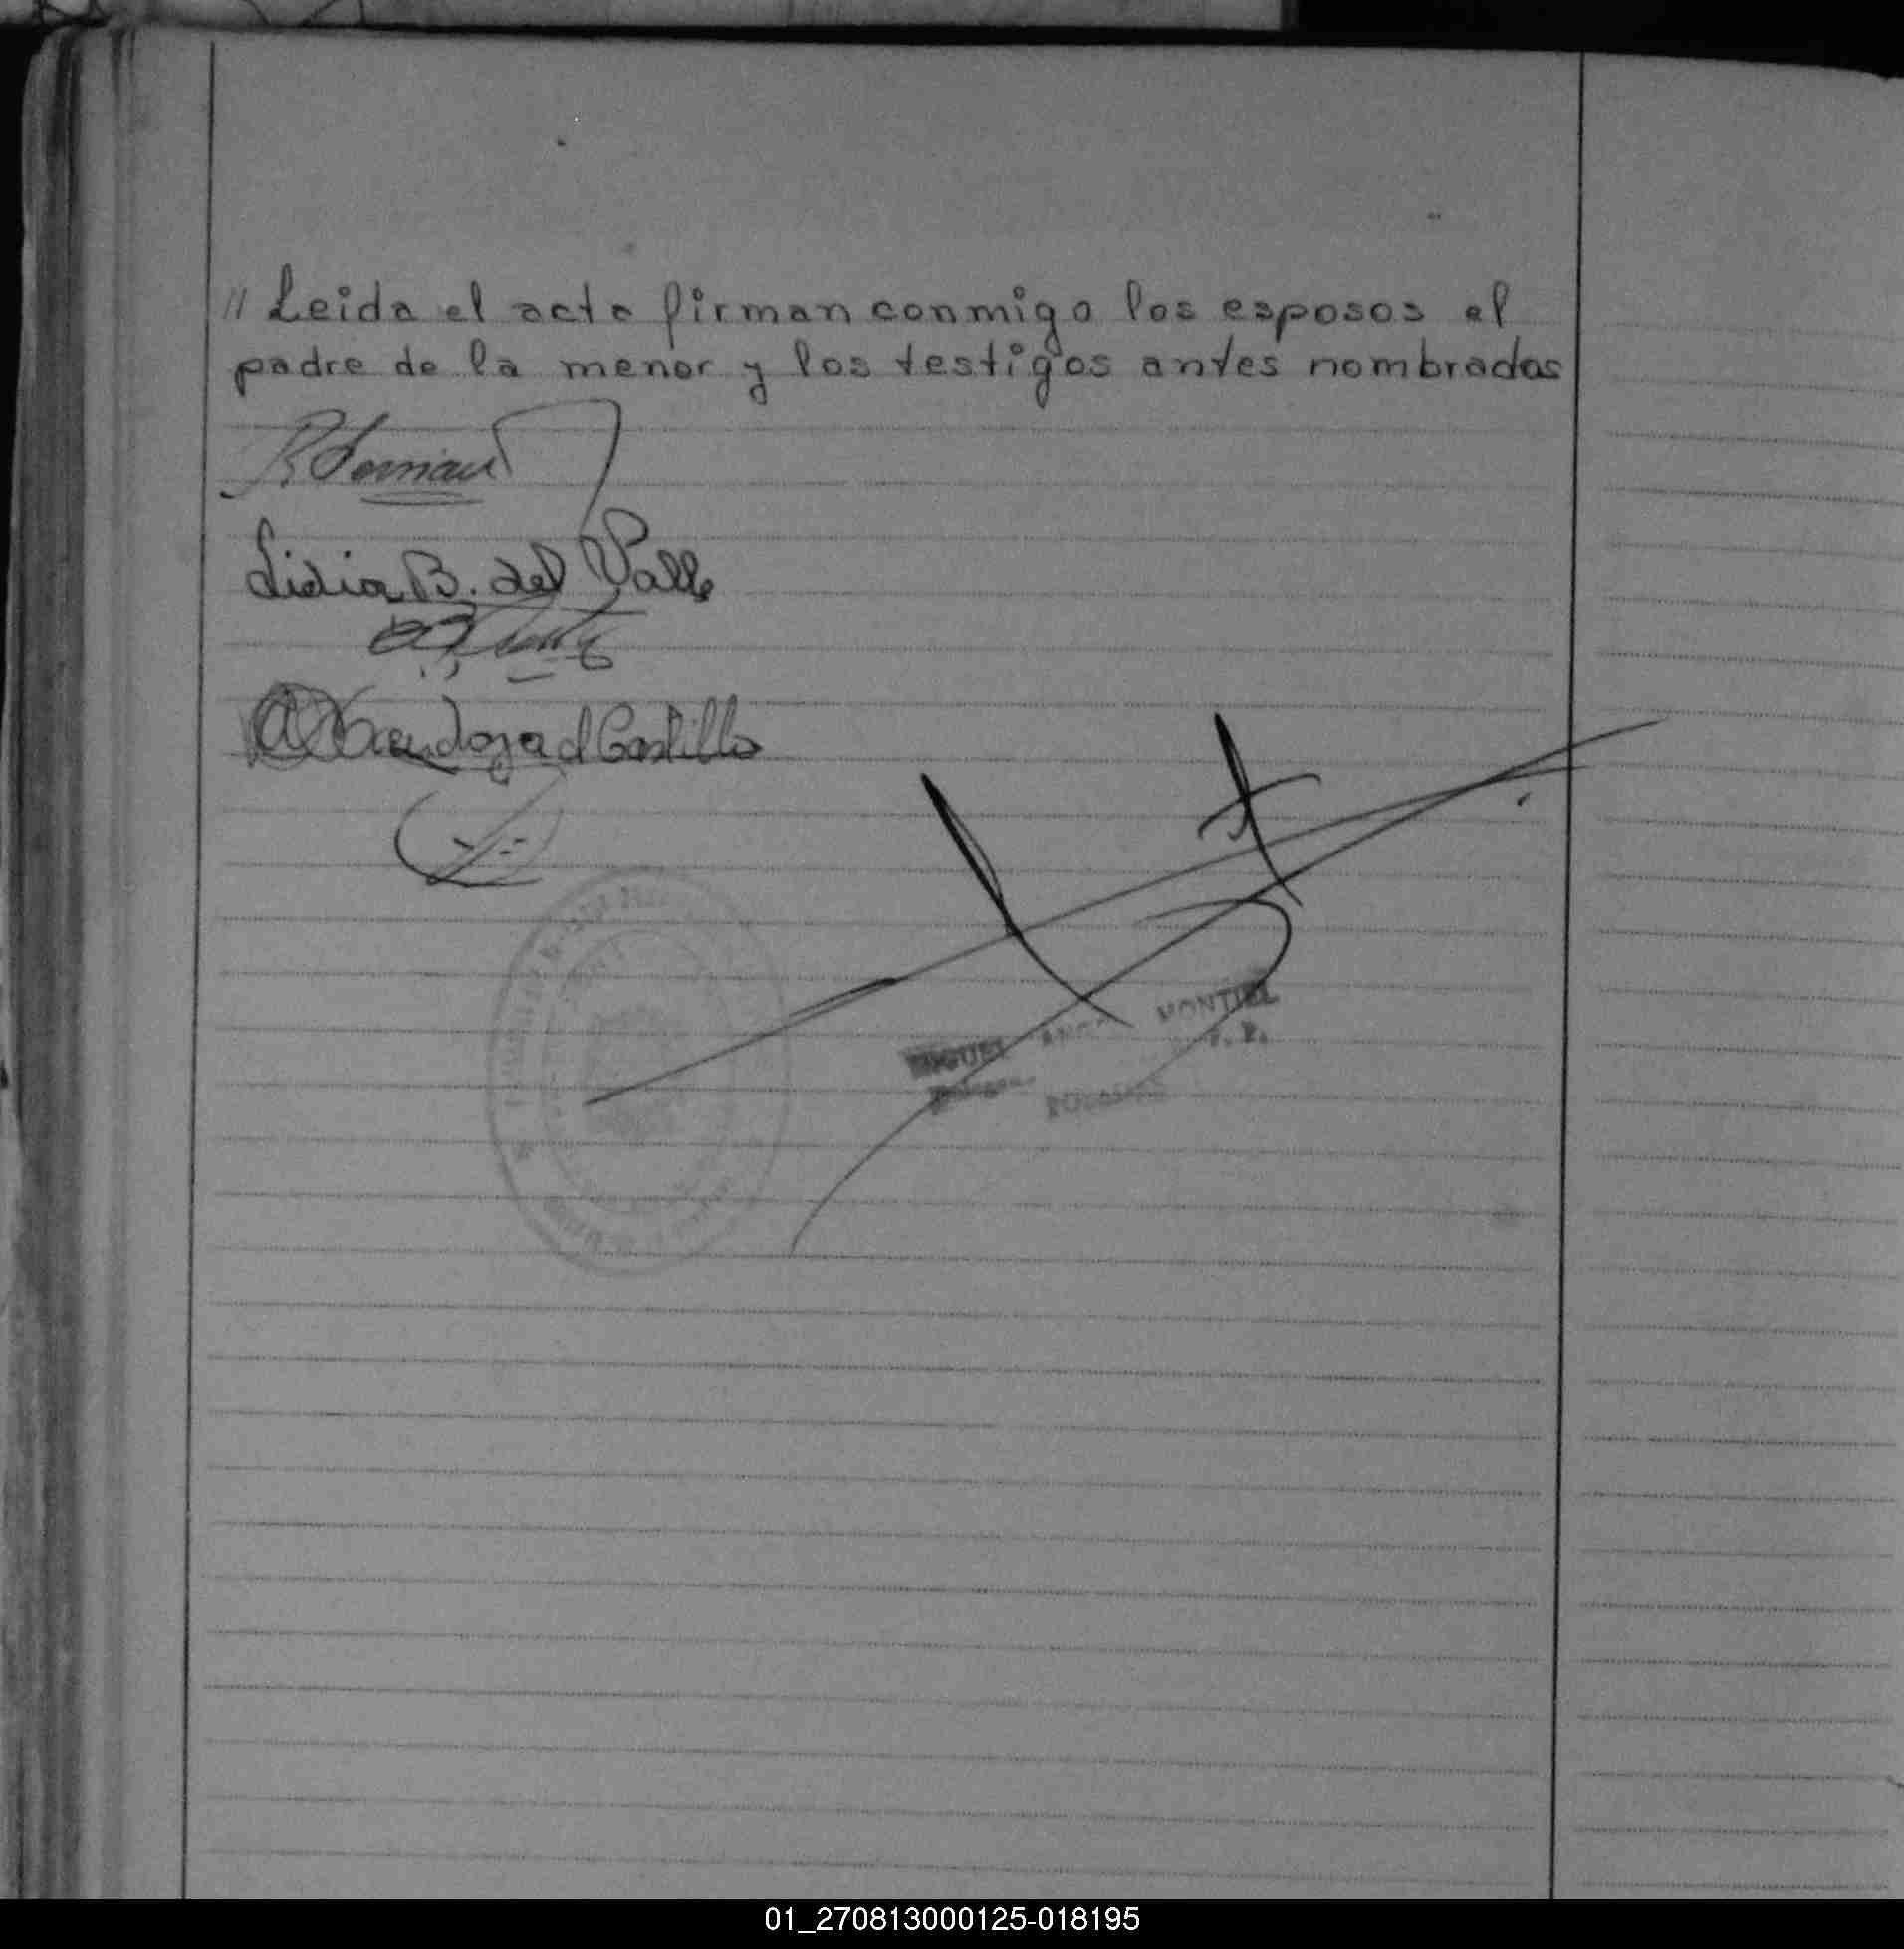 // Leida el acta firman conmigo los esposos el
padre de la menor y los testigos antes nombrados
Lidia B. del Valle
Mendoza d Castillo
MIGUEL ANGEL MONTIEL
01_270813000125-018195